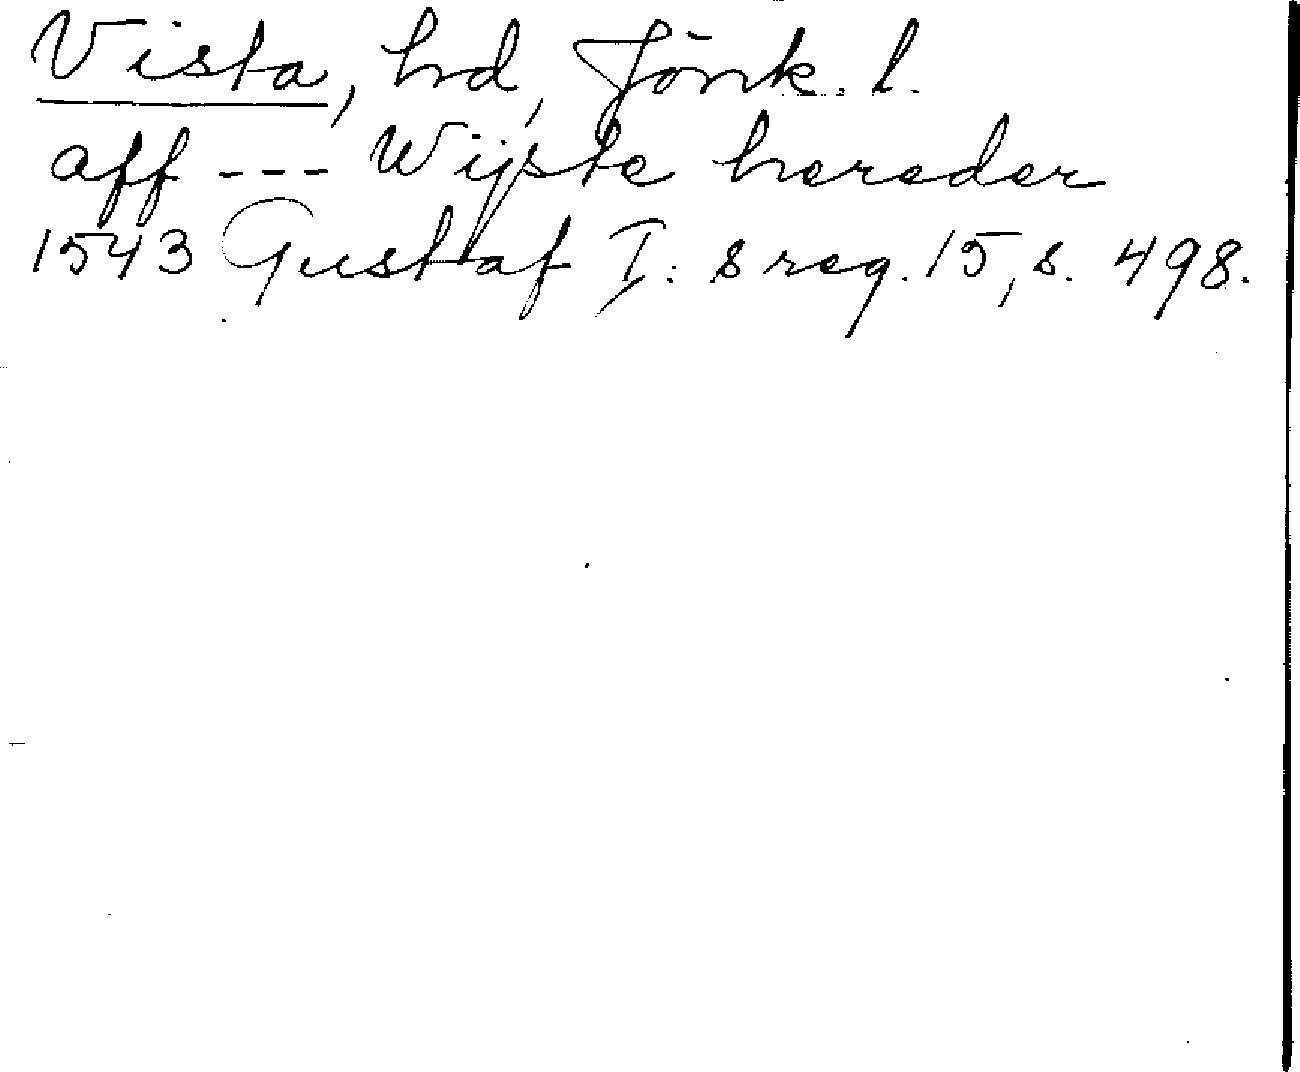 Vista, hd, Jönk. l.
aff --- Wijste hereder
1543 Gustaf I: s reg. 15, s. 498.